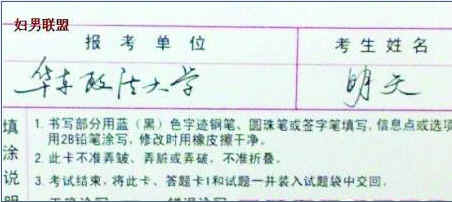 妇男联盟
报考单位 考生姓名
华东政法大学 明天
填涂说 1. 书写部分用蓝（黑）色字迹钢笔、圆珠笔或签字笔填写，信息点或选项
用2B铅笔涂写，修改时用橡皮擦干净。
2. 此卡不准弄皱、弄脏或弄破，不准折叠。
3. 考试结束，将此卡、答题卡1和试题一并装入试题袋中交回。